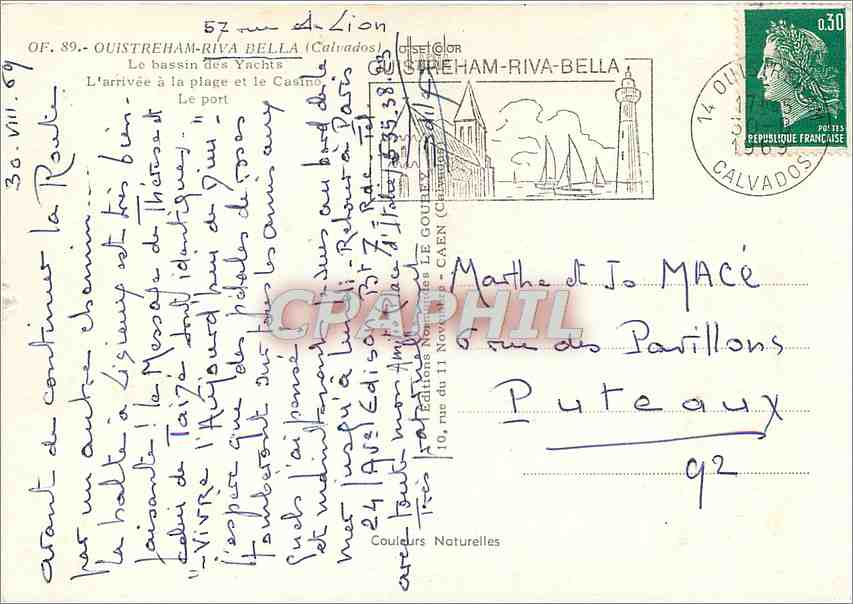 57 rue du Lion
OF. 89.- OUISTREHAM-RIVA BELLA (Calvados)
Le bassin des Yachts
L'arrivée à la plage et le Casino
Le port
OUISTREHAM-RIVA-BELLA
14 OUISTREHAM
1969
CALVADOS
0,30
POSTES
REPUBLIQUE FRANÇAISE
30.VIII.69
avant de continuer la Route
par un autre chemin...
la halte à Lisieux est très bien-
faisante! le Message de Thérèse et
celui de Taizé sont identiques.
"Vivre l'Aujourd'hui de Dieu"
j'espère que des pétales de roses
tomberont sur tous les amis aux
quels j'ai pensé!
et maintenant je suis au bord de la
mer jusqu'à lundi - Retour à Paris
24 Ave Edison 13e 7e Rdc Tel
avec toute mon Amitié (Place d'Italie) 535.38.
Très fraternellement
Editions Normandes LE GOUBEY
10, rue du 11 Novembre - CAEN (Calvados)
Marthe et Jo MACÉ
6 rue des Pavillons
Puteaux
92
Couleurs Naturelles
CPAPHIL